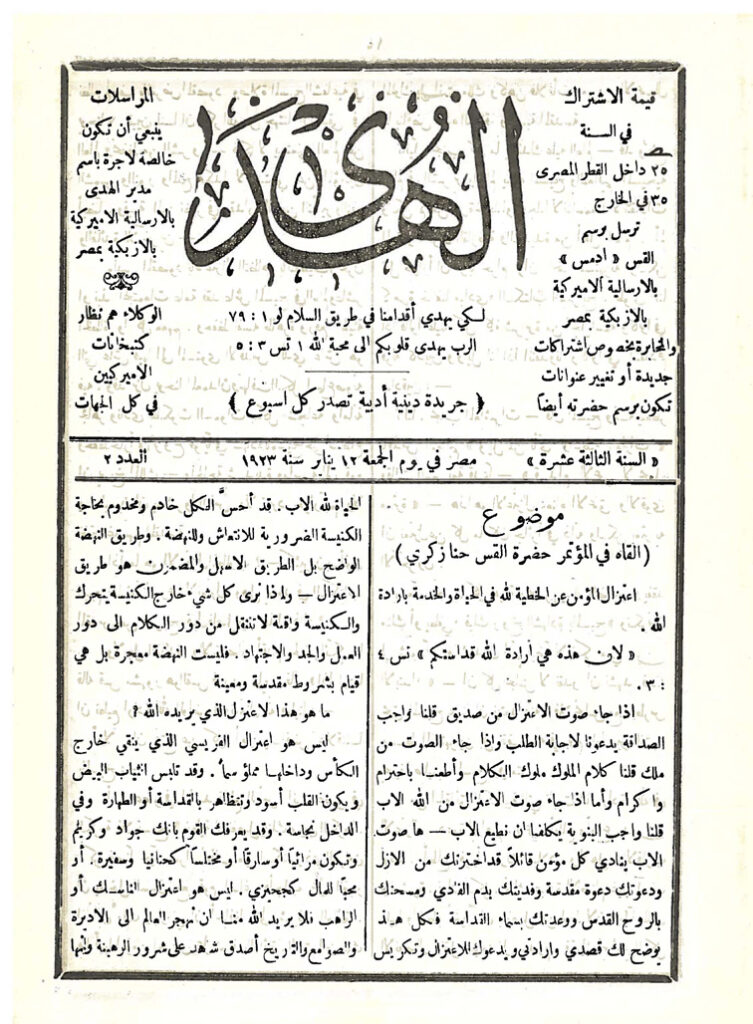 قيمة الاشتراك
في السنة
٢٥ داخل القطر المصرى
٣٥ في الخارج
ترسل برسم
القس « ادمس »
بالارسالية الاميركية
بالازبكية بمصر
والمخابرة بخصوص اشتراكات
جديدة أو تغيير عنوانات
تكون برسم حضرته أيضاً
الهُدى
لكي يهدي أقدامنا في طريق السلام لو ١ : ٧٩
الرب يهدى قلوبكم الى محبة الله ٢ تس ٣ : ٥
( جريدة دينية أدبية تصدر كل اسبوع )
المراسلات
ينبغي أن تكون
خالصة لاجرة باسم
مدير الهدى
بالارسالية الاميركية
بالازبكية بمصر
الوكلاء هم نظار
كتبخانات
الاميركيين
في كل الجهات
« السنة الثالثة عشرة » مصر في يوم الجمعة ١٢ يناير سنة ١٩٢٣ العدد ٢
موضوع
( القاه في المؤتمر حضرة القس حنا زكري )
اعتزال المؤمن عن الخطية لله في الحياة والخدمة بارادة
الله .
« لان هذه هي أرادة الله قداستكم » تس ٤
: ٣ .
اذا جاء صوت الاعتزال من صديق قلنا واجب
الصداقة يدعونا لاجابة الطلب واذا جاء الصوت من
ملك قلنا كلام الملوك ملوك الكلام وأطعنا باحترام
واكرام وأما اذا جاء صوت الاعتزال من الله الاب
قلنا واجب البنوية يكلفنا ان نطيع الاب — ها صوت
الاب ينادي كل مؤمن قائلاً قد اخترتك من الازل
ودعوتك دعوة مقدسة وفديتك بدم الفادي ومسحتك
بالروح القدس ووعدتك بسماء القداسة فكل هذا
يوضح لك قصدي وارادتي ويدعوك للاعتزال وتكريس
الحياة لله الاب . قد أحسَّ الكل خادم ومخدوم بحاجة
الكنيسة الضرورية للانتعاش وللنهضة . وطريق النهضة
الواضح بل الطريق الاسهل والمضمون هو طريق
الاعتزال — ولماذا نرى كل شيء خارج الكنيسة يتحرك
والكنيسة واقفة لا تنتقل من دور الكلام الى دور
العمل والجد والاجتهاد . فليست النهضة معجزة بل هي
قيام بشروط مقدسة ومعينة
ما هو هذا لاعتزال الذي يريده الله ؟
ليس هو اعتزال الفريسي الذي ينقي خارج
الكأس وداخلها مملؤ سماً . وقد تلبس الثياب البيض
ويكون القلب أسود وتتظاهر بالقداسة أو الطهارة وفي
الداخل نجاسة . وقد يعرفك القوم بانك جواد وكريم
وتكون مرائياً أو سارقاً أو مختلساً كحنانيا وسفيرة . أو
محباً للمال كجيحزي . ليس هو اعتزال الناسك أو
الراهب فلا يريد الله منا ان نهجر العالم الى الاديرة
والصوامع والتاريخ أصدق شاهد على شرور الرهبنة ولأنها